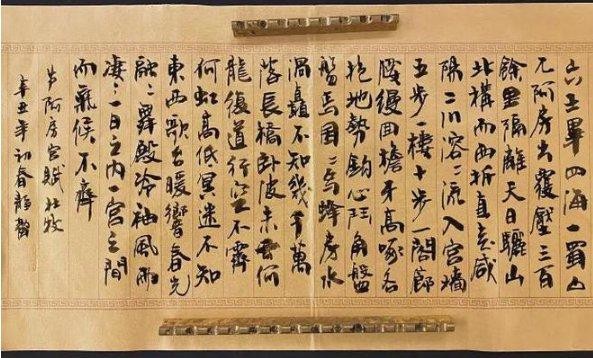 六王畢四海一蜀山
兀阿房出覆壓三百
餘里隔離天日驪山
北構而西折直走咸
陽二川溶〻流入宮牆
五步一樓十步一閣廊
腰縵回檐牙高啄各
抱地勢鈎心鬥角盤
盤焉囷〻焉蜂房水
渦矗不知幾千萬
落長橋卧波未雲何
龍復道行空不霽
何虹高低冥迷不知
東西歌台暖響春光
融〻舞殿冷袖風雨
淒〻一日之內一宮之間
而氣候不齊
节阿房宮賦 杜牧
辛丑年初春